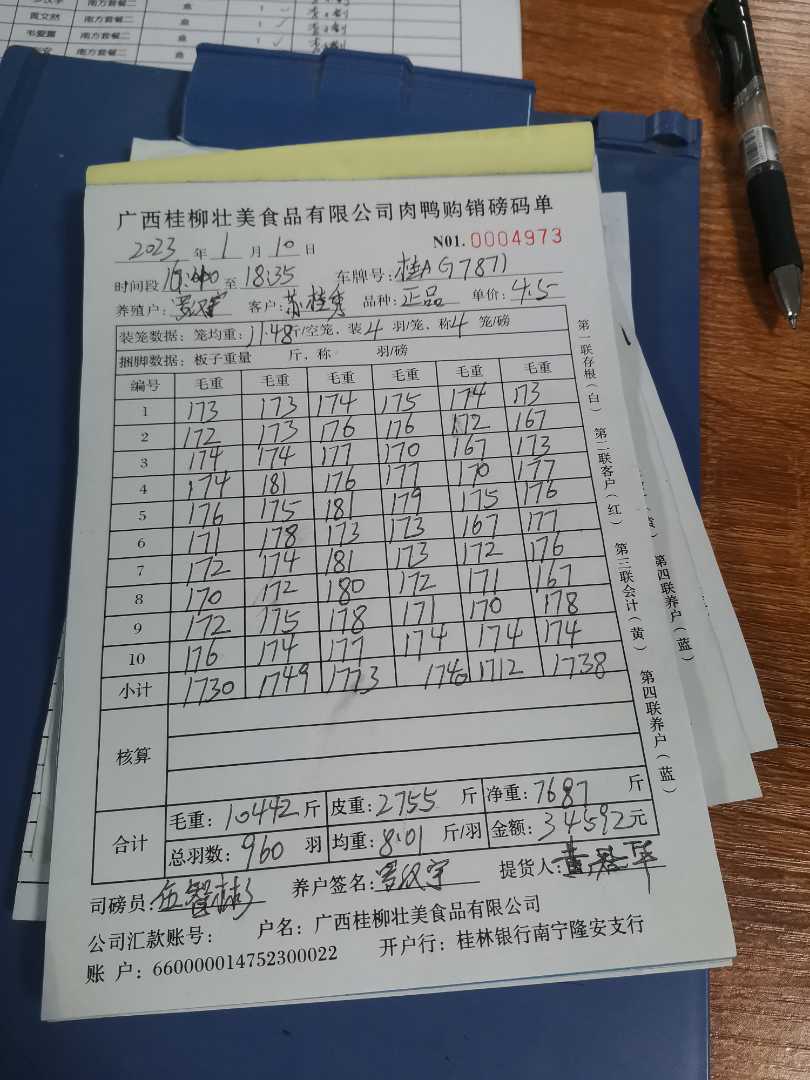 周文然 南方套餐二 鱼 1
韦爱露 南方套餐二 鱼 1
广西桂柳壮美食品有限公司肉鸭购销磅码单
2023 年 1 月 10 日 N01. 0004973
时间段 至 18:35 车牌号: 桂AG7871
养殖户: 罗汉宇 客户: 苏桂秀 品种: 正品 单价: 4.5
装笼数据: 笼均重: 11.48 斤/空笼, 装 4 羽/笼, 称 4 笼/磅
捆脚数据: 板子重量 斤, 称 羽/磅
编号 毛重 毛重 毛重 毛重 毛重 毛重
1 173 173 174 175 174 173
2 172 173 176 176 172 167
3 174 174 177 170 167 173
4 174 181 176 177 170 177
5 176 175 181 179 175 176
6 171 178 173 173 167 177
7 172 174 181 173 172 176
8 170 172 180 172 171 167
9 172 175 178 171 170 178
10 176 174 177 174 174 174
小计 1730 1749 1773 1740 1712 1738
核算
合计 毛重: 10442 斤 皮重: 2755 斤 净重: 7687 斤
总羽数: 960 羽 均重: 8.01 斤/羽 金额: 34592 元
司磅员: 伍智彬 养户签名: 罗汉宇 提货人:
公司汇款账号: 户名: 广西桂柳壮美食品有限公司
账 户: 660000014752300022 开户行: 桂林银行南宁隆安支行
第一联存根(白) 第二联客户(红) 第三联会计(黄) 第四联养户(蓝)
第四联养户(蓝)